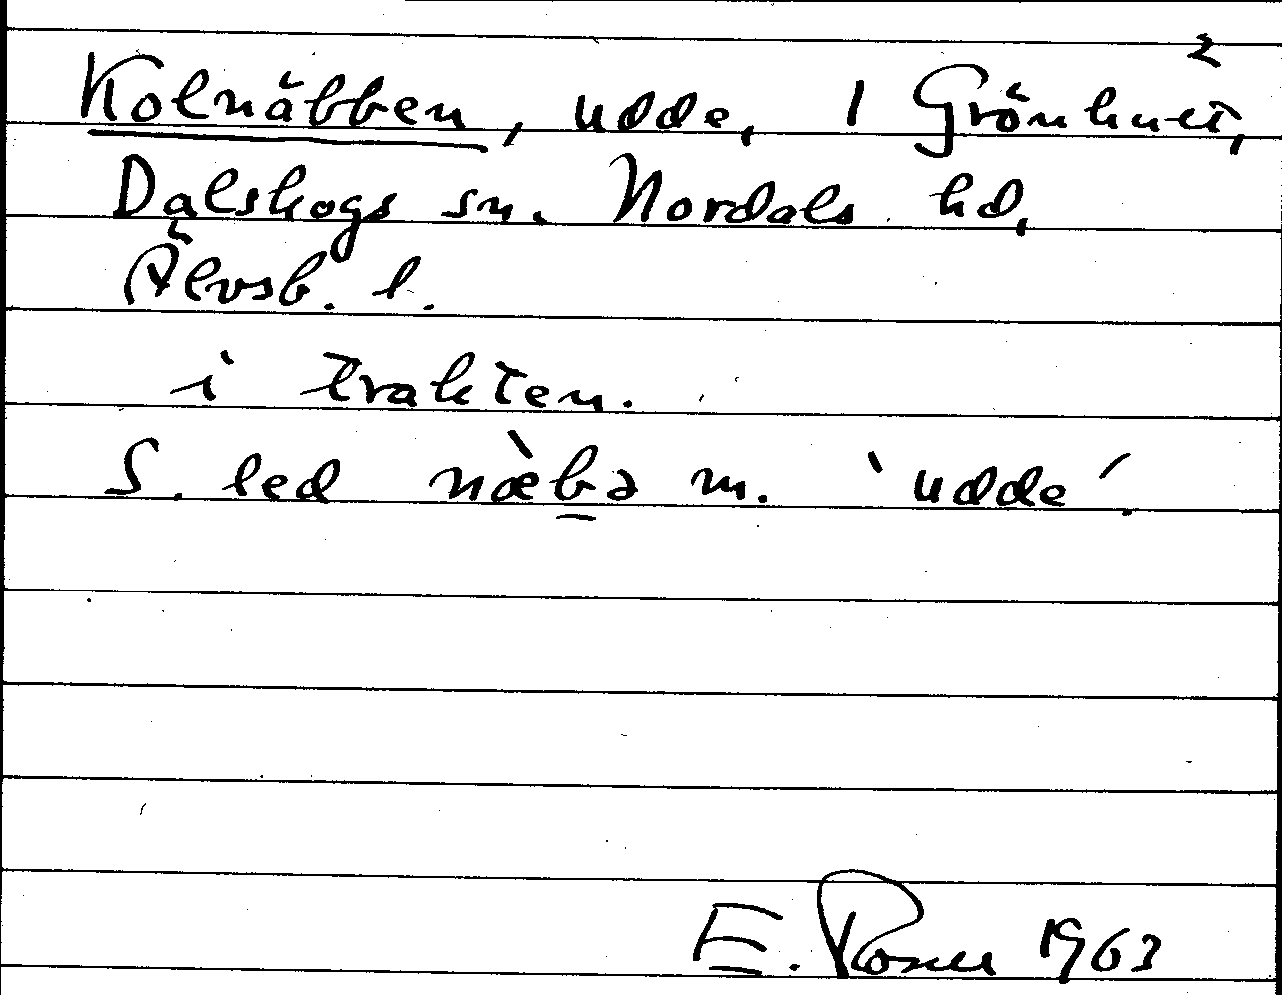 2
Kolnäbben, udde, 1 Grönhult,
Dalskogs sn. Nordals hd,
Älvsb. l.
i trakten.
S. led næ̀bə m. ‵udde′.
E. Rosell 1963